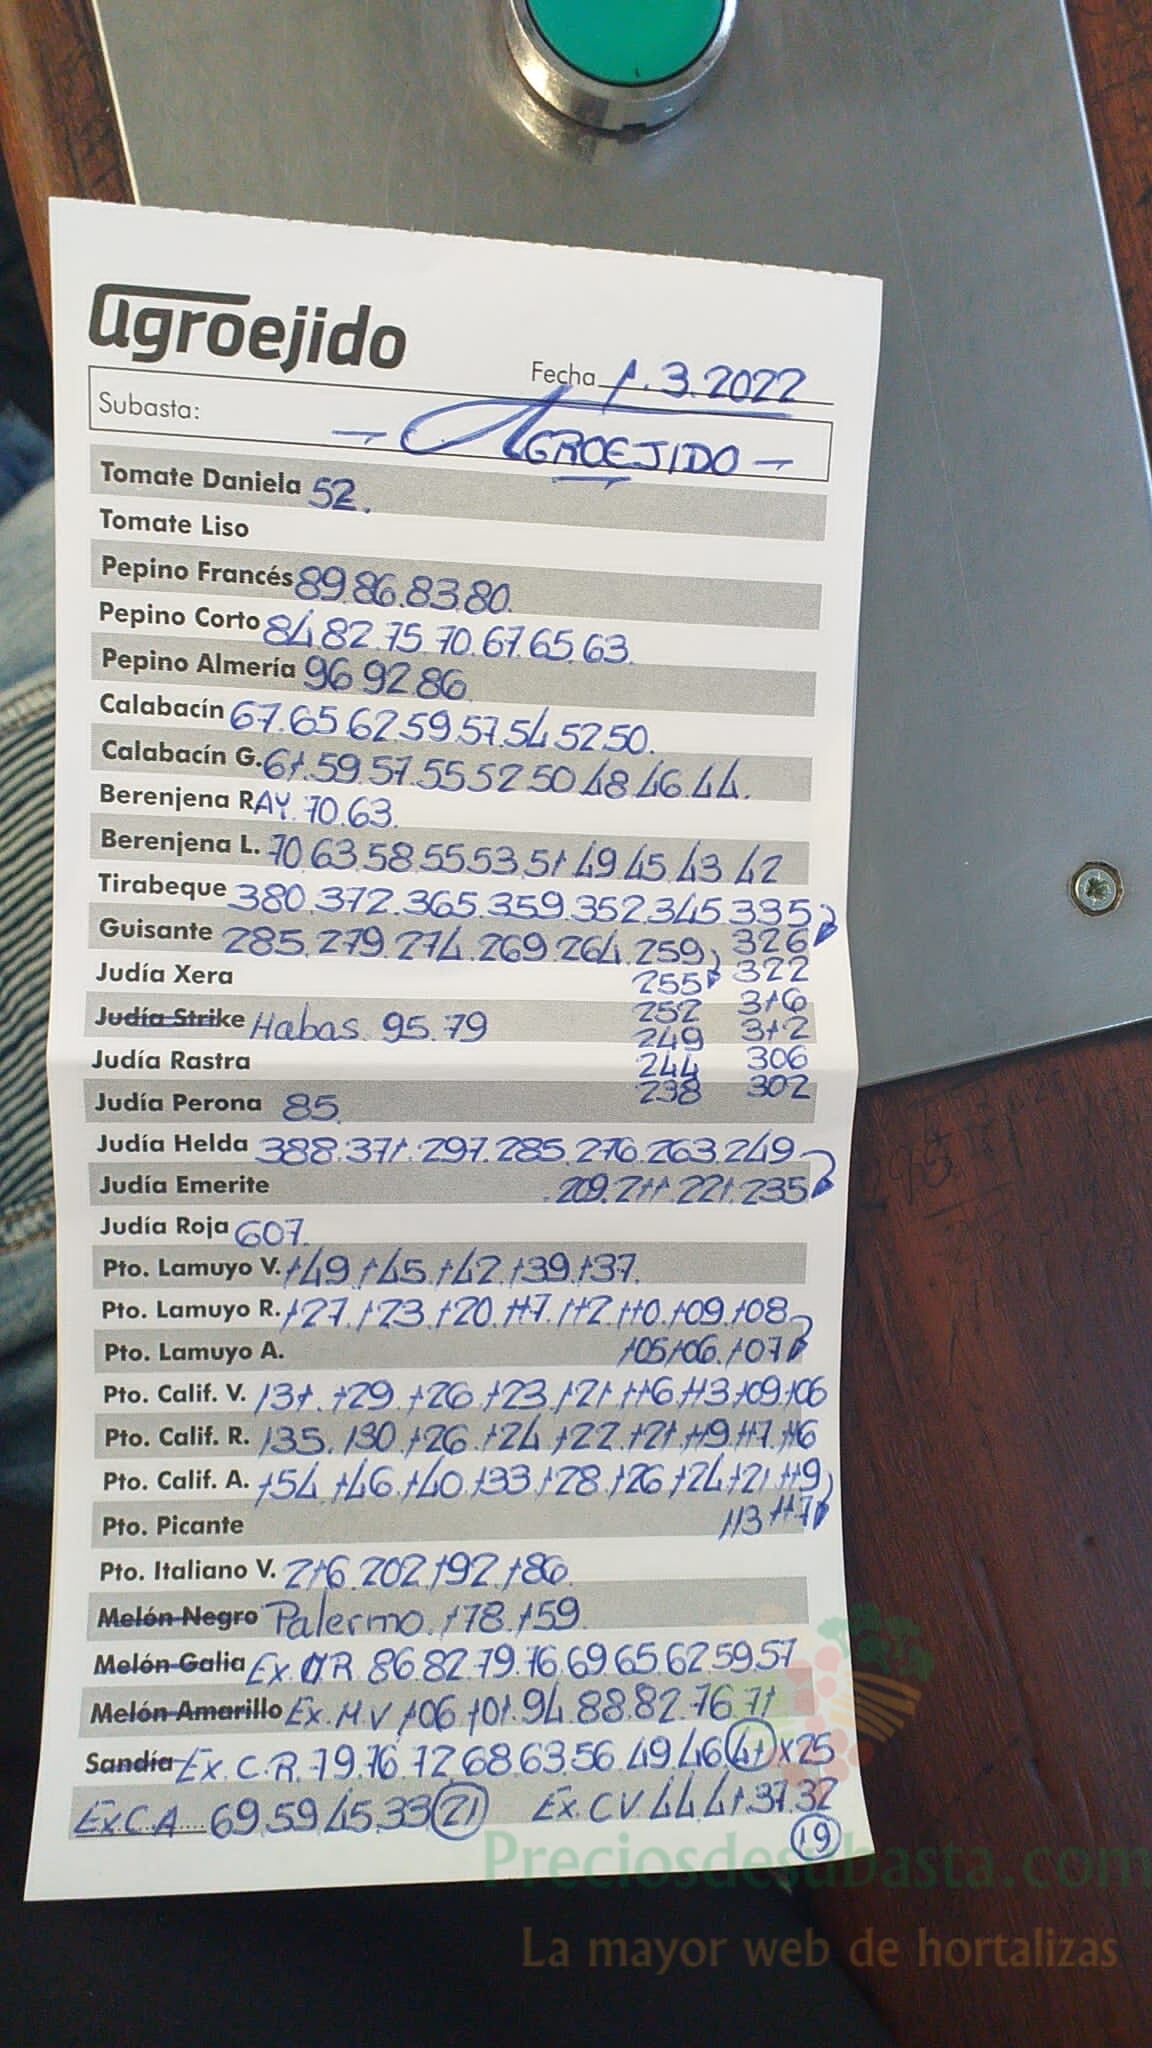 agroejido
Fecha 1.3.2022
Subasta: - AGROEJIDO -
Tomate Daniela 52.
Tomate Liso
Pepino Francés 89.86.83.80.
Pepino Corto 84.82.75.70.67.65.63.
Pepino Almería 96.92.86.
Calabacín 67.65.62.59.57.54.52.50.
Calabacín G. 61.59.57.55.52.50.48.46.44.
Berenjena RAY. 70.63.
Berenjena L. 70.63.58.55.53.51.49.45.43.42
Tirabeque 380.372.365.359.352.345.335
326
Guisante 285.279.274.269.264.259
255 322
Judía Xera
252 316
Judía Strike Habas. 95.79
249 312
Judía Rastra
244 306
238 302
Judía Perona 85.
Judía Helda 388.371.297.285.276.263.249
Judía Emerite 209.211.221.235
Judía Roja 607.
Pto. Lamuyo V. 149.145.142.139.137.
Pto. Lamuyo R. 127.123.120.117.112.110.109.108
Pto. Lamuyo A. 105.106.107
Pto. Calif. V. 131.129.126.123.121.116.113.109.106
Pto. Calif. R. 135.130.126.124.122.121.119.117.116
Pto. Calif. A. 154.146.140.133.128.126.124.121.119
Pto. Picante 113 117
Pto. Italiano V. 216.202.192.186.
Melón Negro Palermo. 178.159
Melón Galia Ex. R. 86.82.79.76.69.65.62.59.57
Melón Amarillo Ex.M.V 106.101.94.88.82.76.71
Sandía Ex.C.R. 79.76.72.68.63.56.49.46 41 x25
Ex.C.A....... 69.59.45.33 21 Ex.CV 44.41.37.32
19
Preciosdesubasta.com
La mayor web de hortalizas